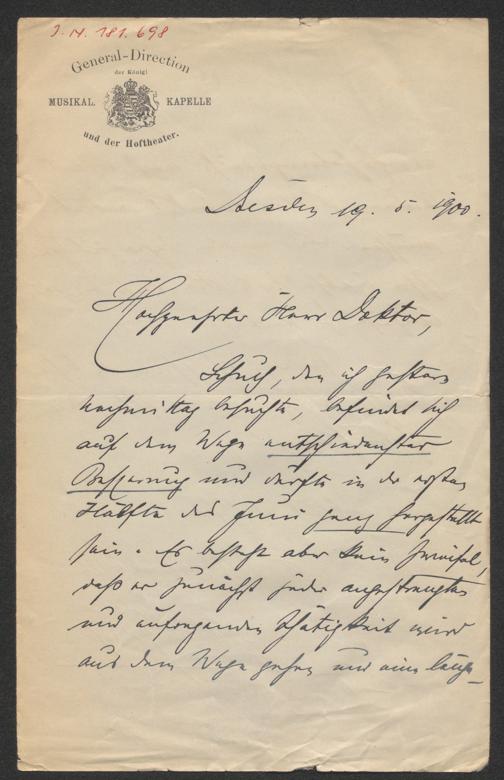 I. N. 181.698
General-Direction
der Königl
MUSIKAL. KAPELLE
und der Hoftheater.
Dresden 19. 5. 1900.
Hochgeehrter Herr Doktor,
Schuch, den ich gestern
nachmittag besuchte, befindet sich
auf dem Wege entschiedenster
Besserung und dürfte in der ersten
Hälfte des Juni ganz hergestellt
sein. Es besteht aber kein Zweifel,
daß er zunächst jeder angestrengten
und aufregenden Thätigkeit wird
aus dem Wege gehen und eine länge-